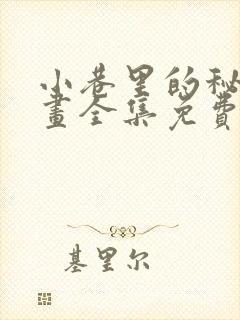 小巷里的秘
畫全集免費
基里尔